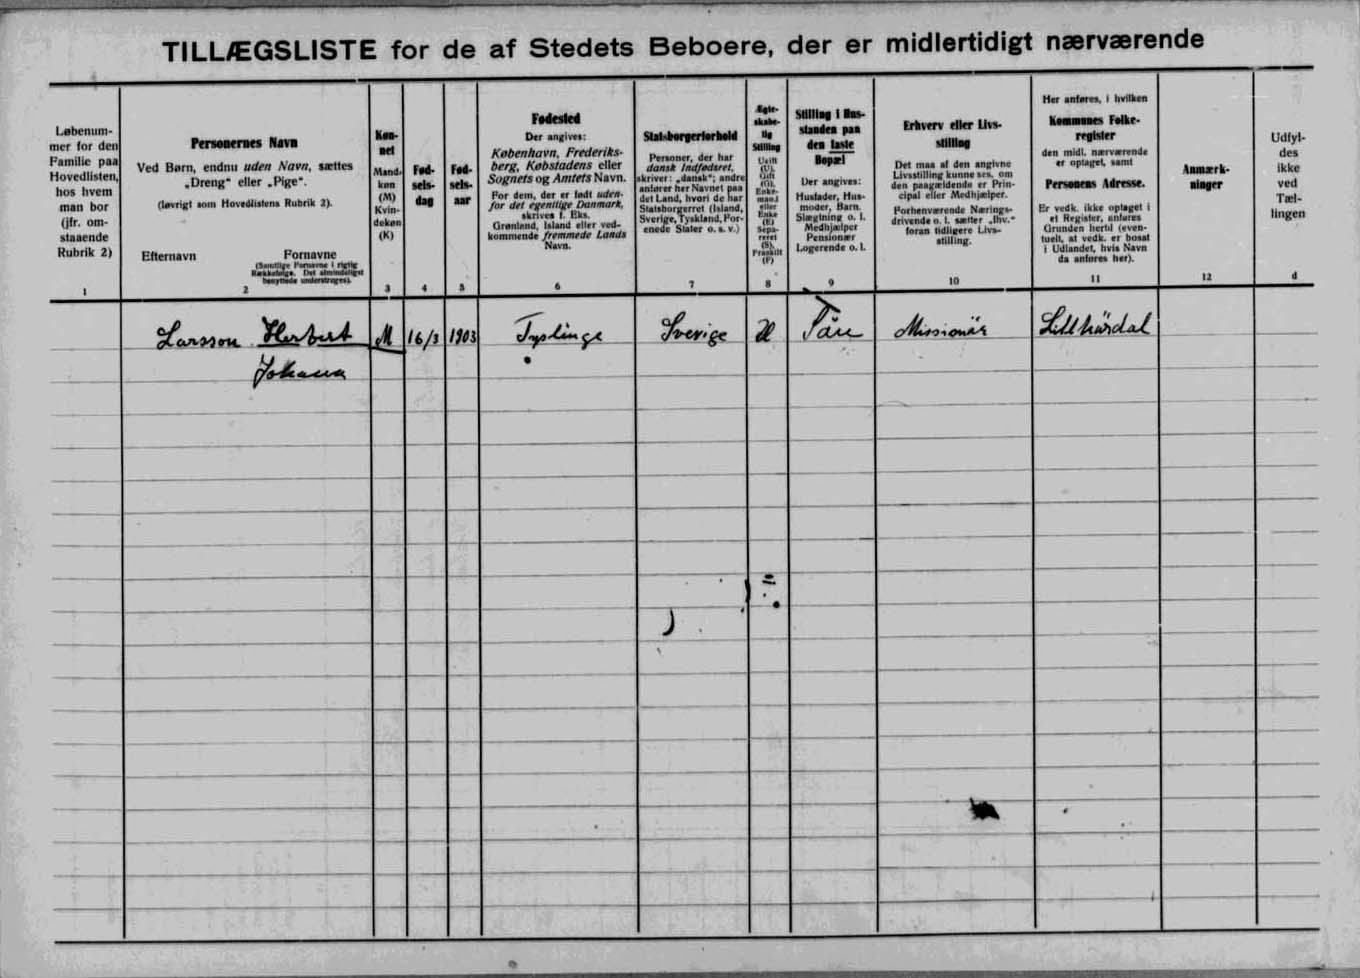 TILLÆGSLISTE for de af Stedets Beboere, der er midlertidigt nærværende
Løbenum-
mer for den
Familie paa
Hovedlisten,
hos hvem
man bor
(jfr. om-
staaende
Rubrik 2)
1
Personernes Navn
Ved Børn, endnu uden Navn, sættes
„Dreng“ eller „Pige“.
(Iøvrigt som Hovedlistens Rubrik 2).
Efternavn
Fornavne
(Samtlige Fornavne i rigtig
Rækkefølge. Det almindeligst
benyttede understreges).
2
Køn-
net
Mand-
køn
(M)
Kvin-
dekøn
(K)
3
Fød-
sels-
dag
4
Fød-
sels-
aar
5
Fødested
Der angives:
København, Frederiks-
berg, Købstadens eller
Sognets og Amtets Navn.
For dem, der er født uden-
for det egentlige Danmark,
skrives f. Eks.
Grønland, Island eller ved-
kommende fremmede Lands
Navn.
6
Statsborgerforhold
Personer, der har
dansk Indfødsret,
skriver: „dansk“; andre
anfører her Navnet paa
det Land, hvori de har
Statsborgerret (Island,
Sverige, Tyskland, For-
enede Stater o. s. v.)
7
Ægte-
skabe-
lig
Stilling
Ugift
(U),
Gift
(G),
Enke-
mand
eller
Enke
(E)
Sepa-
reret
(S),
Fraskilt
(F)
8
Stilling i Hus-
standen paa
den faste
Bopæl
Der angives:
Husfader, Hus-
moder, Barn,
Slægtning o. l.
Medhjælper
Pensionær
Logerende o. l.
9
Erhverv eller Livs-
stilling
Det maa af den angivne
Livsstilling kunne ses, om
den paagældende er Prin-
cipal eller Medhjælper.
Forhenværende Nærings-
drivende o. l. sætter „fhv.“
foran tidligere Livs-
stilling.
10
Her anføres, i hvilken
Kommunes Folke-
register
den midl. nærværende
er optaget, samt
Personens Adresse.
Er vedk. ikke optaget i
et Register, anføres
Grunden hertil (even-
tuelt, at vedk. er bosat
i Udlandet, hvis Navn
da anføres her).
11
Anmærk-
ninger
12
Udfyl-
des
ikke
ved
Tæl-
lingen
d
Larsson Herbert M 16/3 1903 Tyslinge Sverige Missionär Lillhärdal
Johann